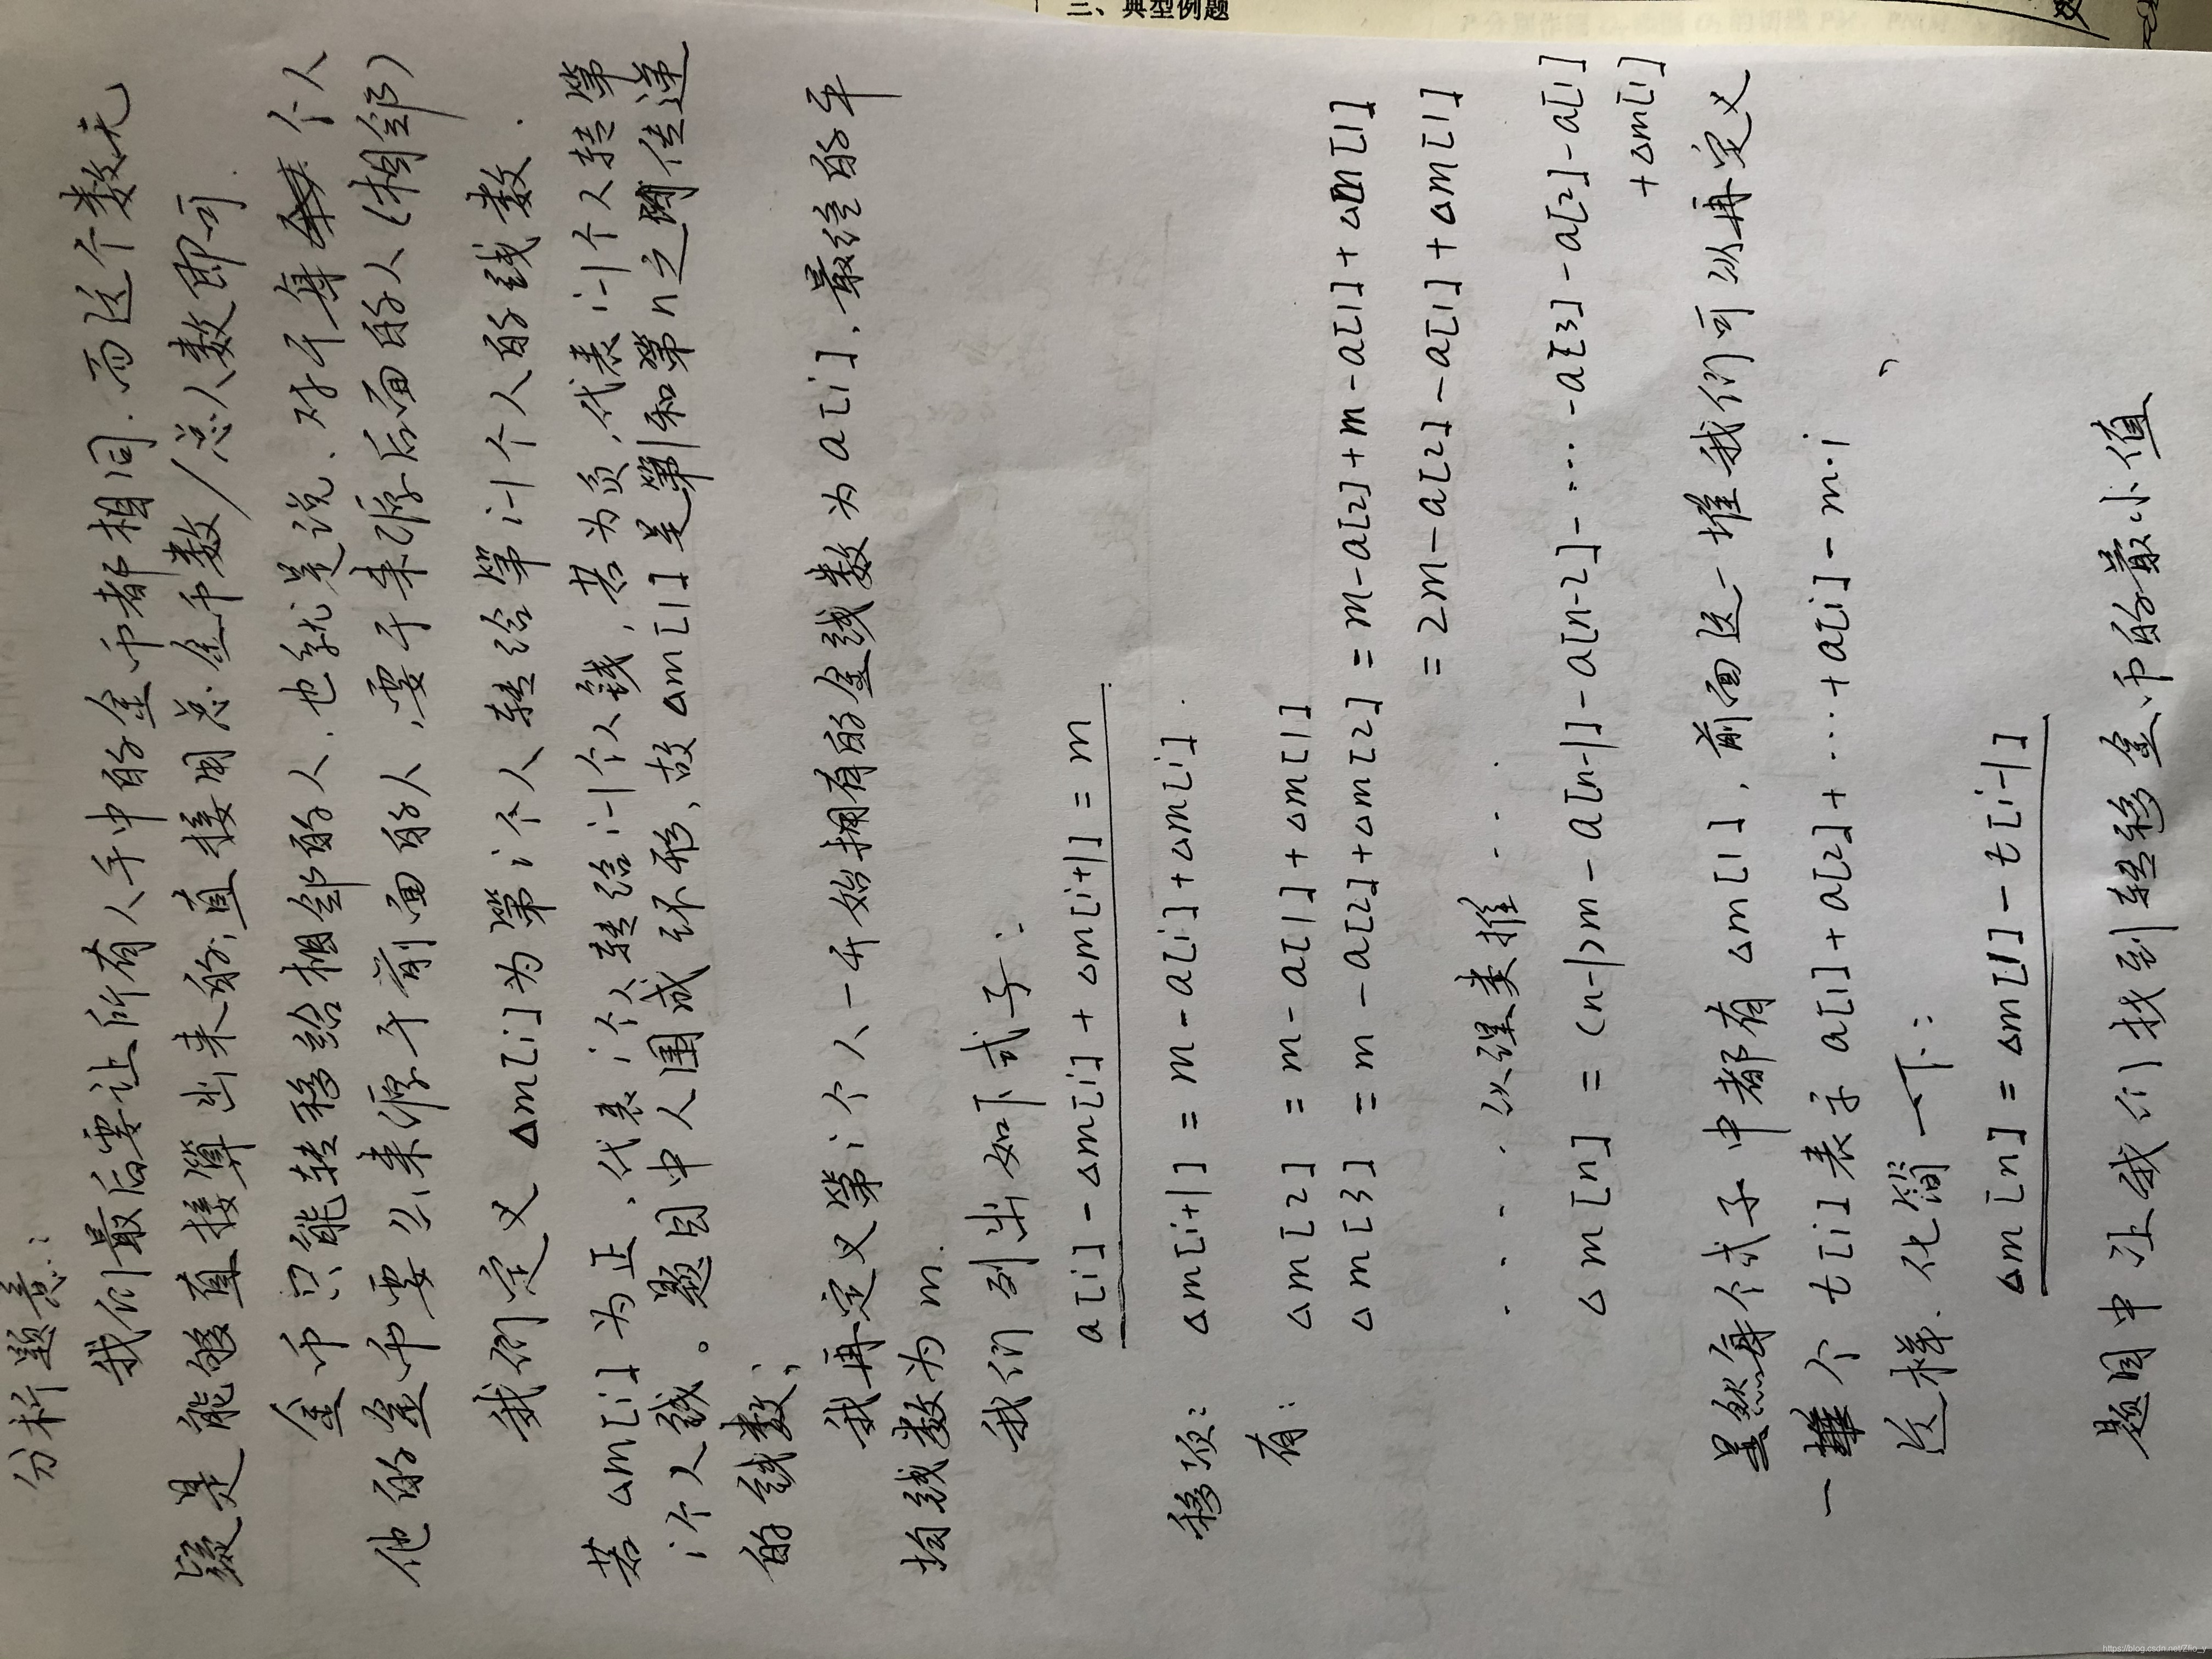 三、典型例题
分析题意：
我们最后要让所有人手中的金币都相同.而这个数无
疑是能够直接算出来的,直接用总金币数/总人数即可.
金币只能转移给相邻的人.也就是说、对于每个人
他的金币要么来源于前面的人,要于来源后面的人(相邻)
我们定义 △m[i]为第i个人转给第i-1个人的钱数.
若△m[i]为正,代表i个人转给i-1个人钱,若为负,代表i-1个人转第
i个人钱。题目中人围成环形、故△m[1]是第1和第n之间传递
的钱数;
我再定义第i个人一开始拥有的金钱数为a[i],最终的平
均钱数为m.
我们列出如下式子:
a[i]-△m[i]+△m[i+1]=m
移项: △m[i+1]=m-a[i]+△m[i].
有: △m[2]=m-a[1]+△m[1]
△m[3]=m-a[2]+△m[2]=m-a[2]+m-a[1]+△m[1]
=2m-a[2]-a[1]+△m[1]
....以误类推....
△m[n]=(n-1)m-a[n-1]-a[n-2]-...-a[3]-a[2]-a[1]
+△m[1]
显然每个式子中都有△m[1],前面这一堆我们可以再定义
一个t[i]表示a[1]+a[2]+...+a[i]-m·i,
这样.化简一下:
△m[n]=△m[1]-t[i-1]
题目中让我们找到转移金币的最小值
https://blog.csdn.net/Zflo_y